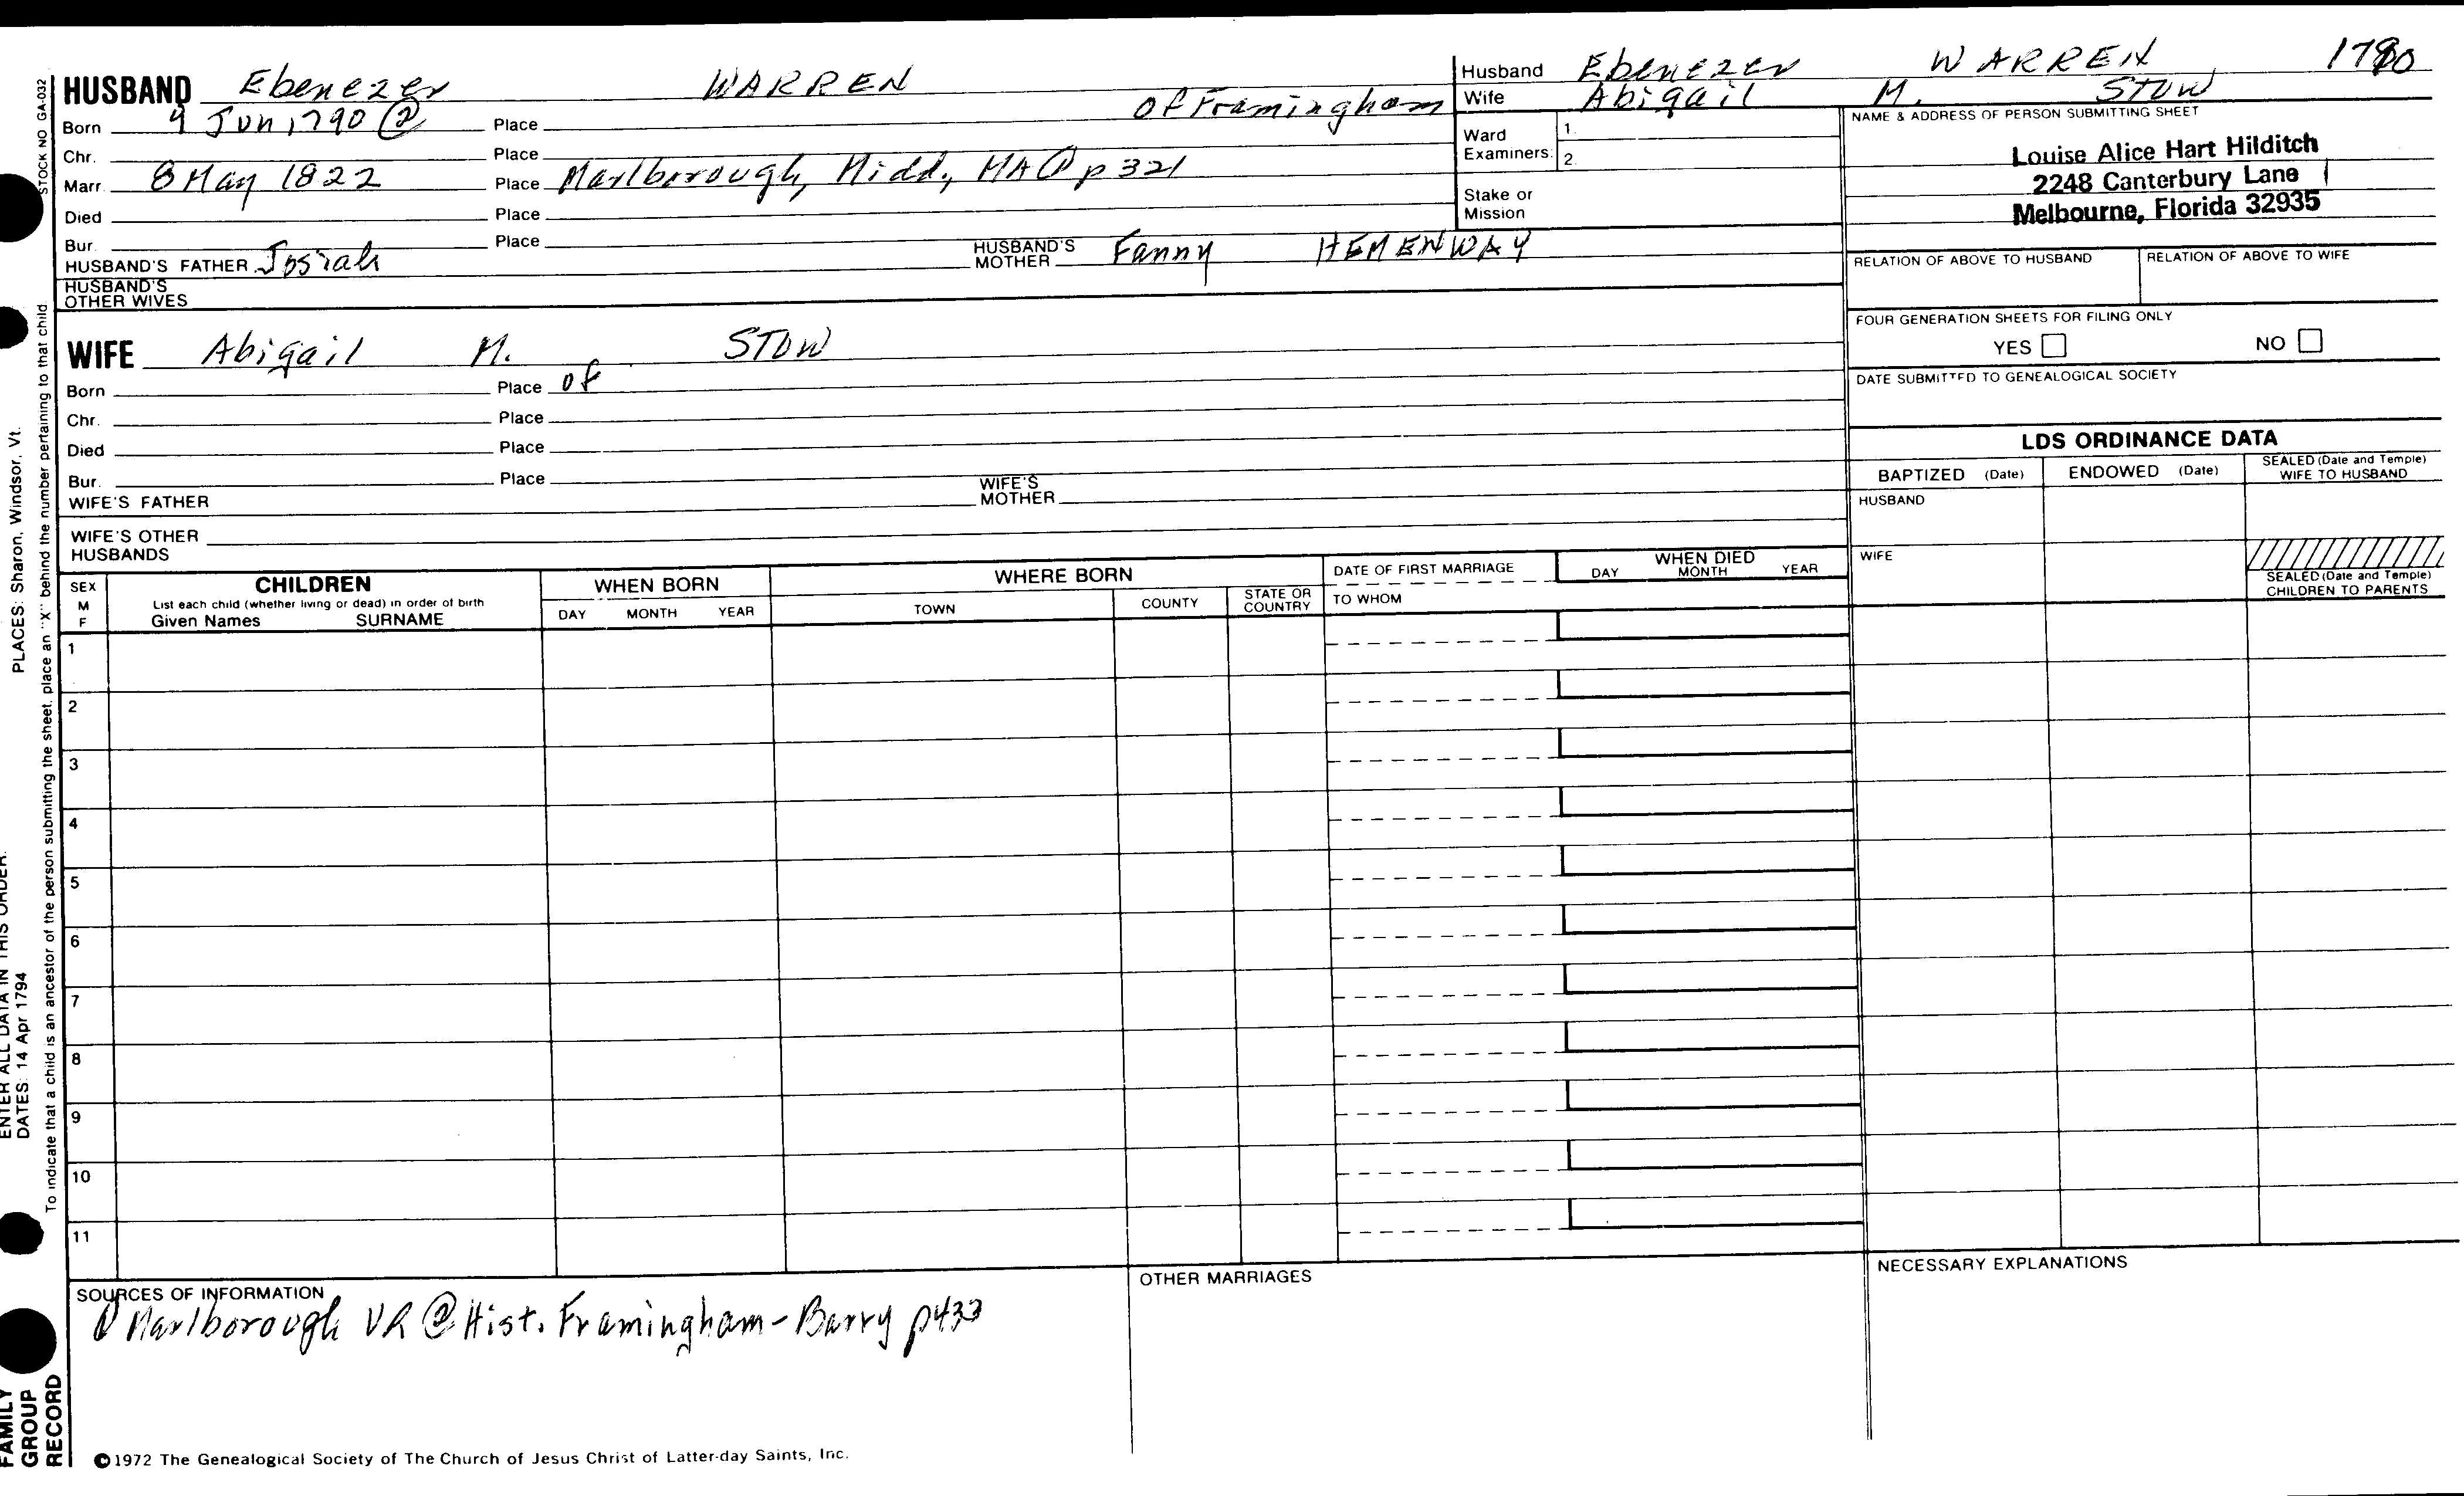 HUSBAND Ebenezer WARREN
Born 9 Jun 1790 ② Place of Framingham
Chr. Place
Marr. 8 May 1822 Place Marlborough, Midd., MA ① p 321
Died Place
Bur. Place
HUSBAND'S FATHER Josiah HUSBAND'S MOTHER Fanny HEMENWAY
HUSBAND'S OTHER WIVES
WIFE Abigail M. STOW
Born Place of
Chr. Place
Died Place
Bur. Place
WIFE'S FATHER WIFE'S MOTHER
WIFE'S OTHER HUSBANDS
Husband Ebenezer WARREN 1790
Wife Abigail M. STOW
Ward Examiners: 1.
2.
Stake or Mission
NAME & ADDRESS OF PERSON SUBMITTING SHEET
Louise Alice Hart Hilditch
2248 Canterbury Lane
Melbourne, Florida 32935
RELATION OF ABOVE TO HUSBAND RELATION OF ABOVE TO WIFE
FOUR GENERATION SHEETS FOR FILING ONLY
YES NO
DATE SUBMITTED TO GENEALOGICAL SOCIETY
LDS ORDINANCE DATA
BAPTIZED (Date) ENDOWED (Date) SEALED (Date and Temple) WIFE TO HUSBAND
HUSBAND
WIFE
SEALED (Date and Temple) CHILDREN TO PARENTS
SEX M F
CHILDREN
List each child (whether living or dead) in order of birth
Given Names SURNAME
WHEN BORN
DAY MONTH YEAR
WHERE BORN
TOWN COUNTY STATE OR COUNTRY
DATE OF FIRST MARRIAGE
TO WHOM
WHEN DIED
DAY MONTH YEAR
1
2
3
4
5
6
7
8
9
10
11
SOURCES OF INFORMATION
① Marlborough VR ② Hist. Framingham - Barry p433
OTHER MARRIAGES
NECESSARY EXPLANATIONS
©1972 The Genealogical Society of The Church of Jesus Christ of Latter-day Saints, Inc.
STOCK NO GA-032
To indicate that a child is an ancestor of the person submitting the sheet, place an "X" behind the number pertaining to that child
PLACES: Sharon, Windsor, Vt.
ENTER ALL DATA IN THIS ORDER:
DATES: 14 Apr 1794
FAMILY
GROUP
RECORD